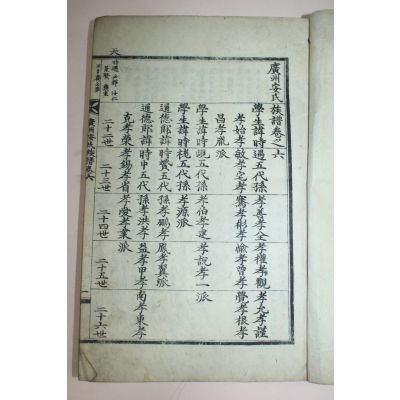 廣州安氏族譜卷之六
學生諱時過五代孫孝善孝全孝權孝觀孝允孝謹
孝始孝敏孝宅孝騫孝彬孝愉孝曾孝聲孝根孝
昌孝胤派
學生諱時 五代孫孝伯孝進孝說孝一派
學生諱時 五代孫孝源派
通德郎諱時 五代孫孝鵬孝鳳孝翼派
通德郎諱時申五代孫孝洪孝益孝甲孝南孝東孝
克孝榮孝錫孝省孝俊孝業派
二十二世
二十三世
二十四世
二十五世
二十六世
天
廣州安氏族譜卷六
一